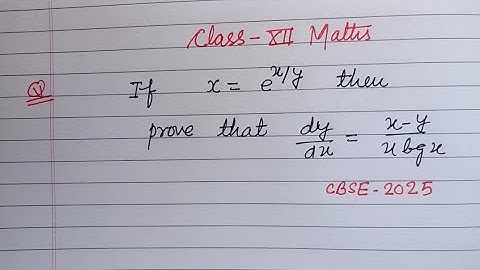 Class-XII Maths
Q If x = e^x/y then
prove that dy/dx = x-y/x log x
CBSE-2025